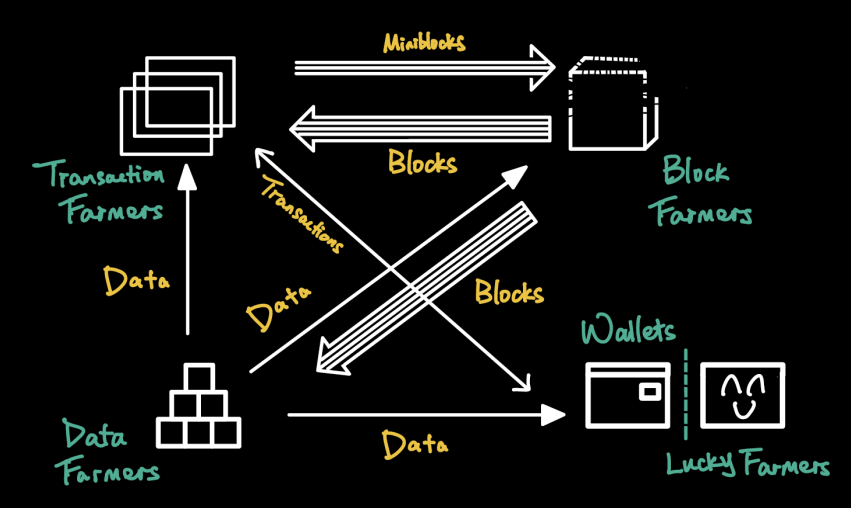 Miniblocks
Blocks
Transaction
Farmers
Block
Farmers
Transactions
Data
Data
Blocks
Wallets
Data
Farmers
Data
Lucky Farmers